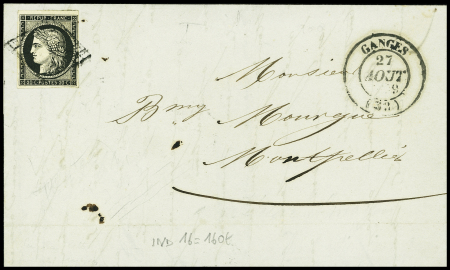 REPUB. FRANC.
20 C. POSTES 20 C.
GANGES
27
AOUT
(33)
Monsieur
Bmy Mourgue
Montpellier
IND 16 = 160€